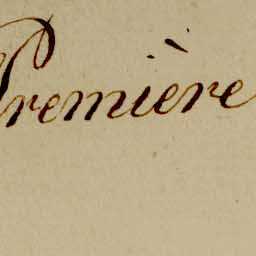 Première